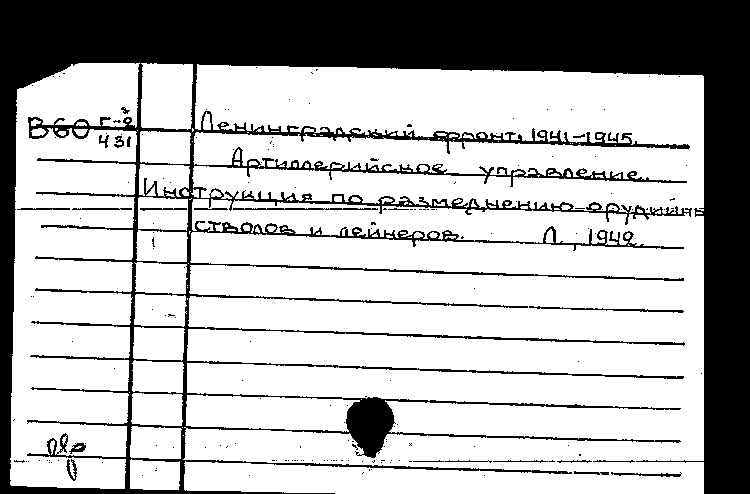 В60 Г-2 Ленинградский фронт, 1941-1945.
431
Артиллерийское управление.
Инструкция по размеднению орудийн
стволов и лейнеров. Л., 1942.